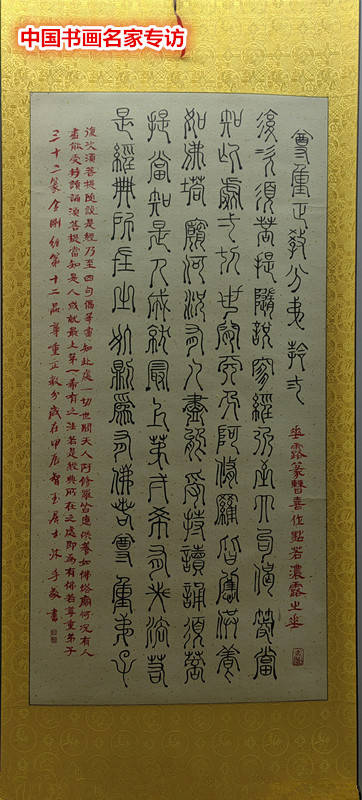 中国书画名家专访
尊重正教分第十二
垂露篆曹喜作點若濃露之垂
復次須菩提隨說是經乃至四句偈等當
知此處一切世間天人阿修羅皆應供養
如佛塔廟何況有人盡能受持讀誦須菩
提當知是人成就最上第一希有之法若
是經典所在之處即為有佛若尊重弟子
復次須菩提隨說是經乃至四句偈等當知此處一切世間天人阿修羅皆應供養如佛塔廟何況有人
盡能受持讀誦須菩提當知是人成就最上第一希有之法若是經典所在之處即為有佛若尊重弟子
三十二篆金剛經第十二品尊重正教分歲在甲辰智居士沐手敬書